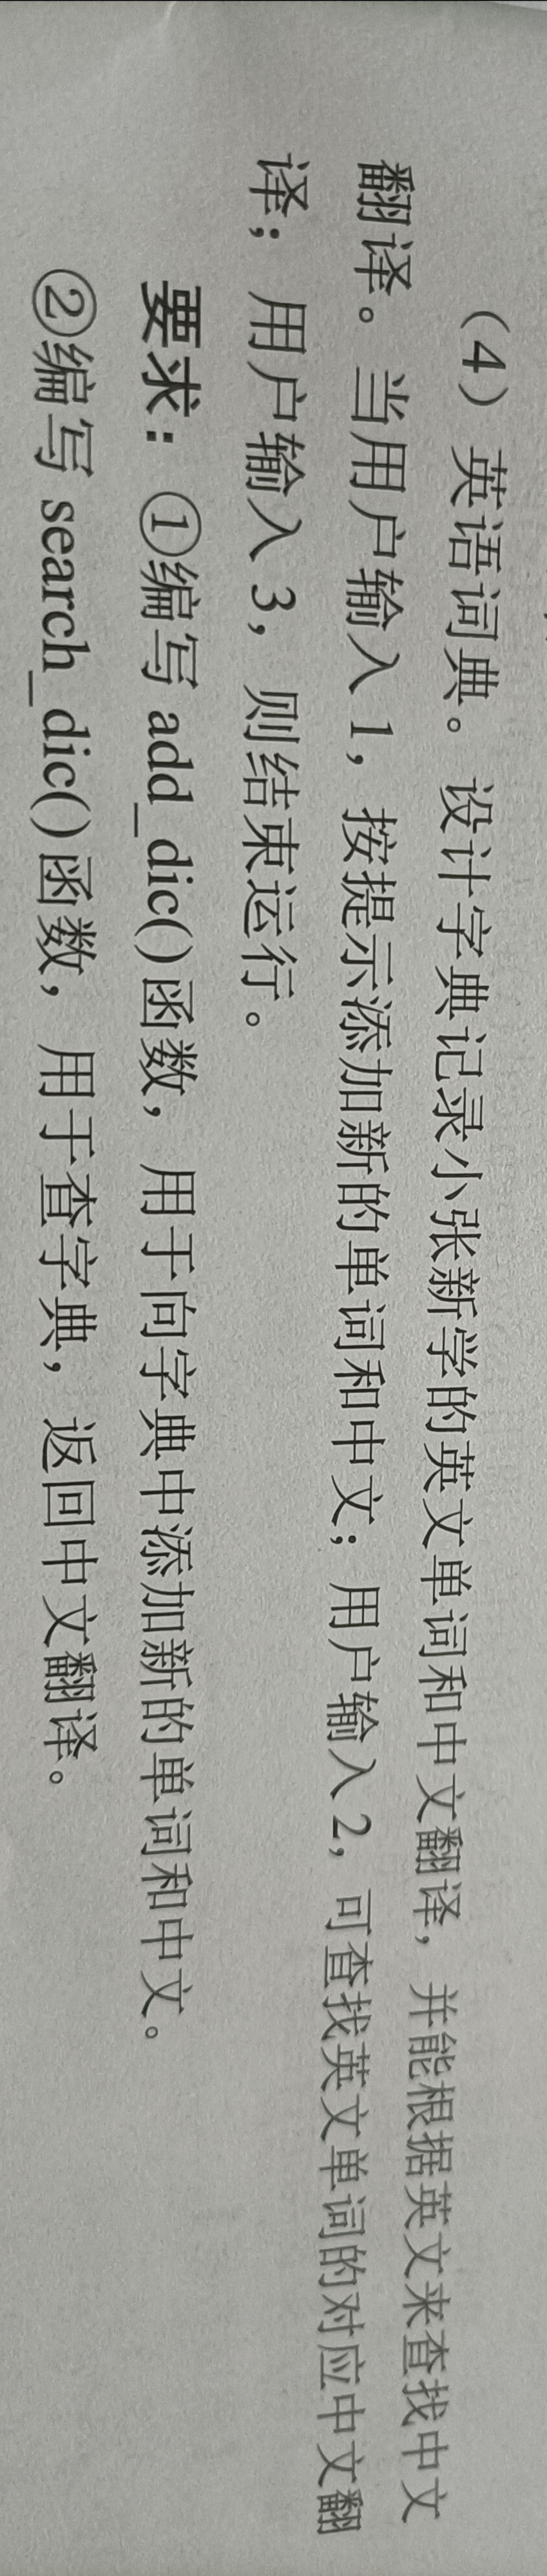 （4）英语词典。设计字典记录小张新学的英文单词和中文翻译，并能根据英文来查找中文
翻译。当用户输入 1，按提示添加新的单词和中文；用户输入 2，可查找英文单词的对应中文翻
译；用户输入 3，则结束运行。
要求：①编写 add_dic()函数，用于向字典中添加新的单词和中文。
②编写 search_dic()函数，用于查字典，返回中文翻译。